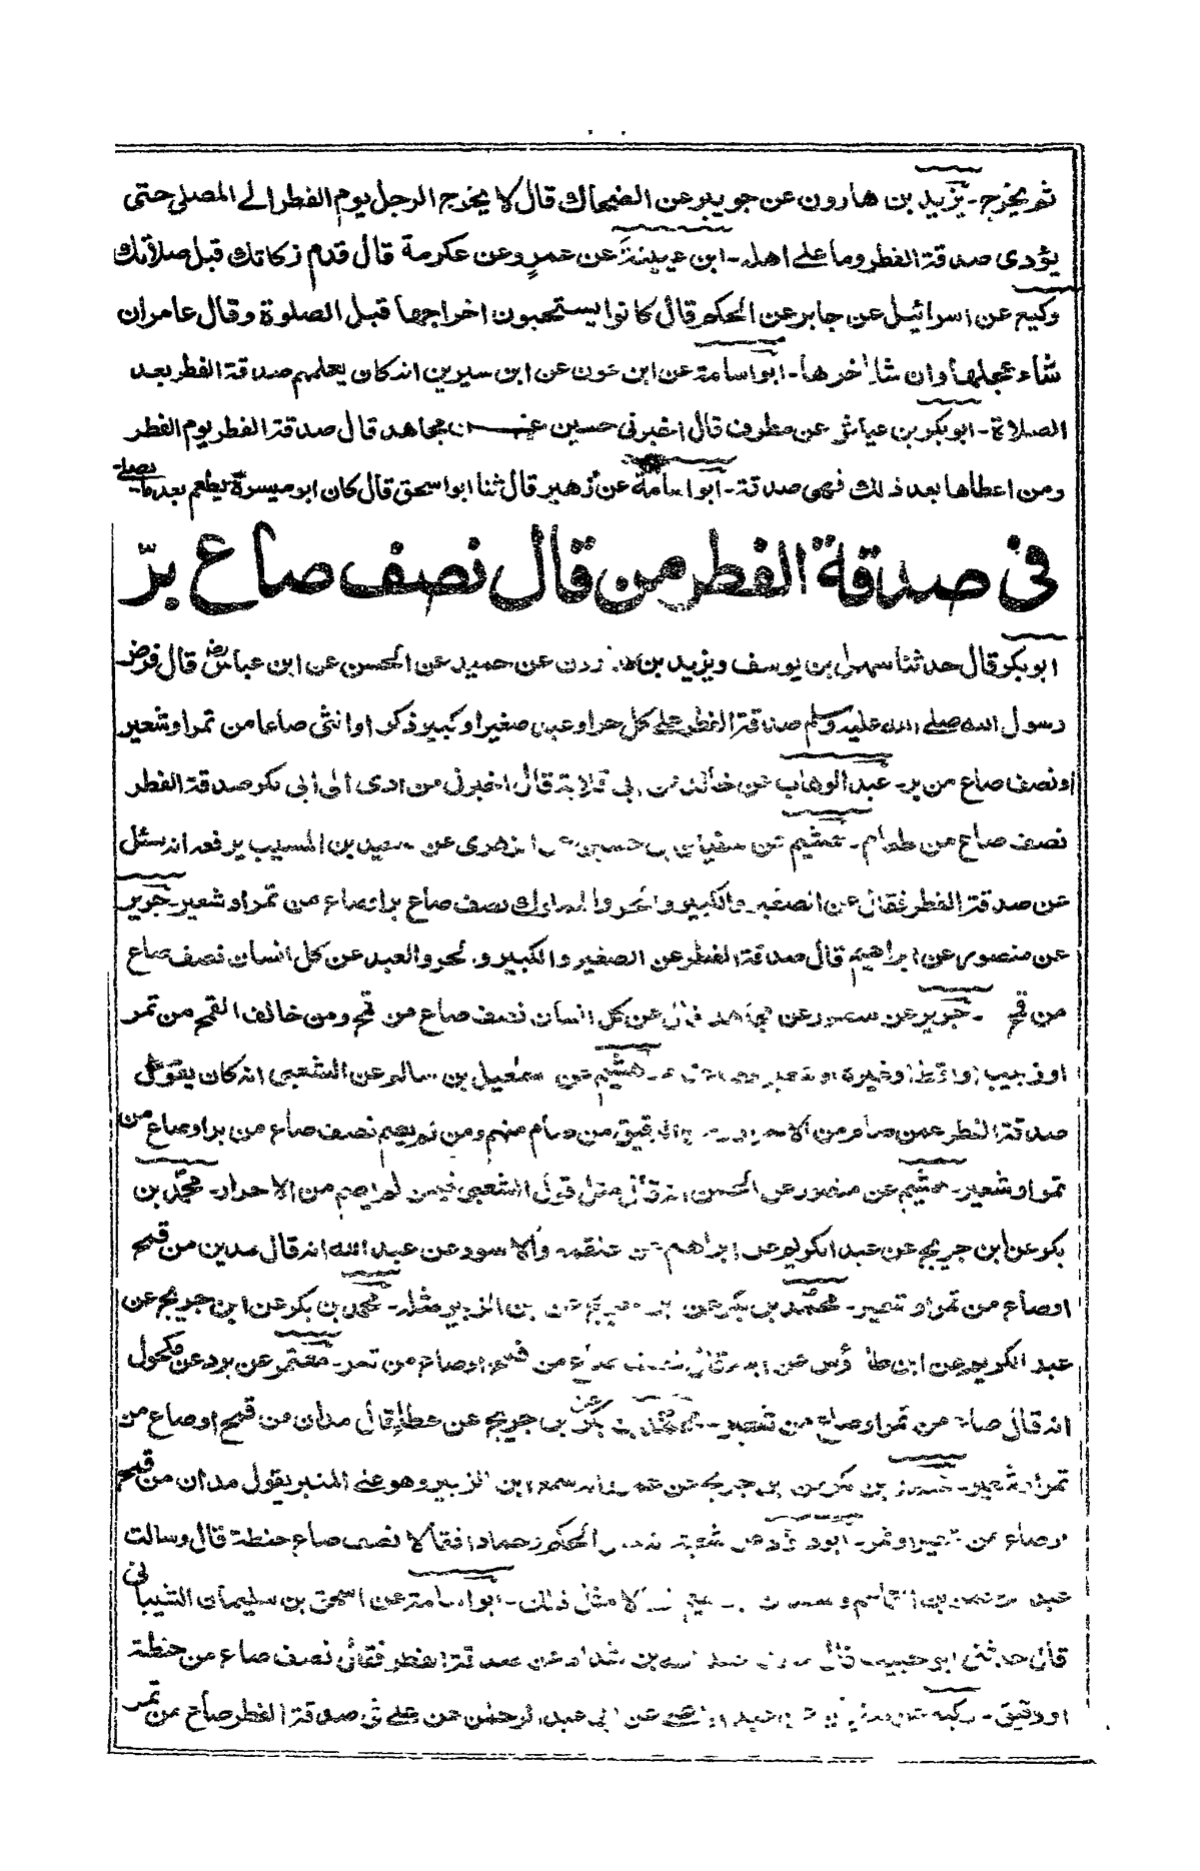 ثم يخرج - يزيد بن هارون عن جويبر عن الضحاك قال لا يخرج الرجل يوم الفطر الى المصلى حتى
يؤدى صدقة الفطر وما على اهله - ابن عيينة عن عمرو عن عكرمة قال قدم زكاتك قبل صلاتك
وكيع عن اسرائيل عن جابر عن الحكم قال كانوا يستحبون اخراجها قبل الصلوة وقال عامر ان
شاء عجلها وان شاء اخرها - ابو اسامة عن ابن عون عن ابن سيرين انه كان يعلمهم صدقة الفطر بعد
الصلاة - ابو بكر بن عياش عن مطرف قال اخبرنى حسين عن مجاهد قال صدقة الفطر يوم الفطر
ومن اعطاها بعد ذلك فهى صدقة - ابو اسامة عن زهير قال ثنا ابو اسحق قال كان ابو ميسرة يطعم بعد ما يصلى
فى صدقة الفطر من قال نصف صاع برّ
ابو بكر قال حدثنا سهل بن يوسف ويزيد بن عن حميد عن الحسن عن ابن عباس رض قال فرض
رسول الله صلى الله عليه وسلم صدقة الفطر على كل حر او عبد صغير او كبير ذكر او انثى صاعا من تمر او شعير
او نصف صاع من بر - عبد الوهاب عن خالد عن ابى قلابة قال اخبرنى من ادى الى ابى بكر صدقة الفطر
نصف صاع من طعام - هشيم عن سفيان بن حسين عن الزهرى عن سعيد بن المسيب يرفعه انه سئل
عن صدقة الفطر فقال عن الصغير والكبير والحر والمملوك نصف صاع بر او صاع من تمر او شعير - جرير
عن منصور عن ابراهيم قال صدقة الفطر عن الصغير والكبير والحر والعبد عن كل انسان نصف صاع
من قمح - جرير عن منصور عن مجاهد قال عن كل انسان نصف صاع من قمح ومن خالف القمح من تمر
او زبيب او اقط او غيره او شعير - هشيم عن اسمعيل بن سالم عن الشعبى انه كان يقول
صدقة الفطر عمن صام من الاحرار الرقيق من صام منهم ومن لم يصم نصف صاع من بر او صاع من
تمر او شعير - هشيم عن منصور عن الحسن انه قال مثل قول الشعبى فيمن لم يصم من الاحرار - محمد بن
بكر عن ابن جريج عن عبد الكريم عن ابراهيم عن علقمة والاسود عن عبد الله انه قال مدين من قمح
او صاع من تمر او شعير - محمد بن بكر عن بن الزبير مثله - محمد بن بكر عن ابن جريج عن
عبد الكريم عن ابن طاؤس عن ابيه قال نصف صاع من قمح او صاع من تمر - معتمر عن برد عن مكحول
انه قال صاع من تمر او صاع من شعير - محمد بن بكر عن بن جريج عن عطاء قال مدان من قمح او صاع من
تمر او شعير - بن بكر عن بن جريج عن انه سمع ابن الزبير وهو على المنبر يقول مدان من قمح
او صاع من شعير او تمر - ابو داؤد عن شعبة الحكم وحماد افقالا نصف صاع حنطة قال وسالت
عبد الرحمن بن القاسم فقالا مثل ذلك - ابو اسامة عن اسحق بن سليمان الشيبانى
قال حدثنى ابو حبيب قال بن شداد عن صدقة الفطر فقال نصف صاع من حنطة
او دقيق - وكيع عن ابى عبد الرحمن عن على فى صدقة الفطر صاع من تمر